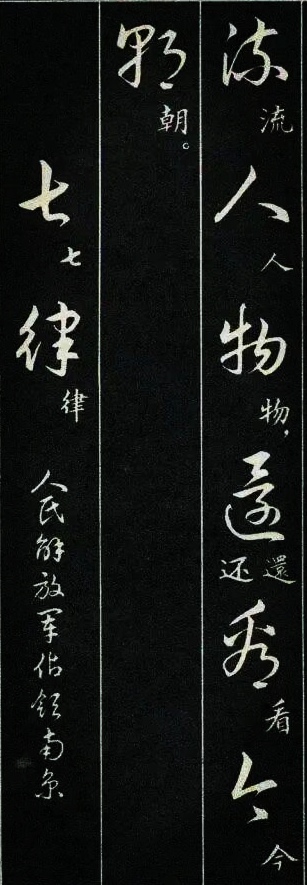 流人物,還看今
流人物,还還看今
朝
朝。
七律
七律
人民解放军佔領南京